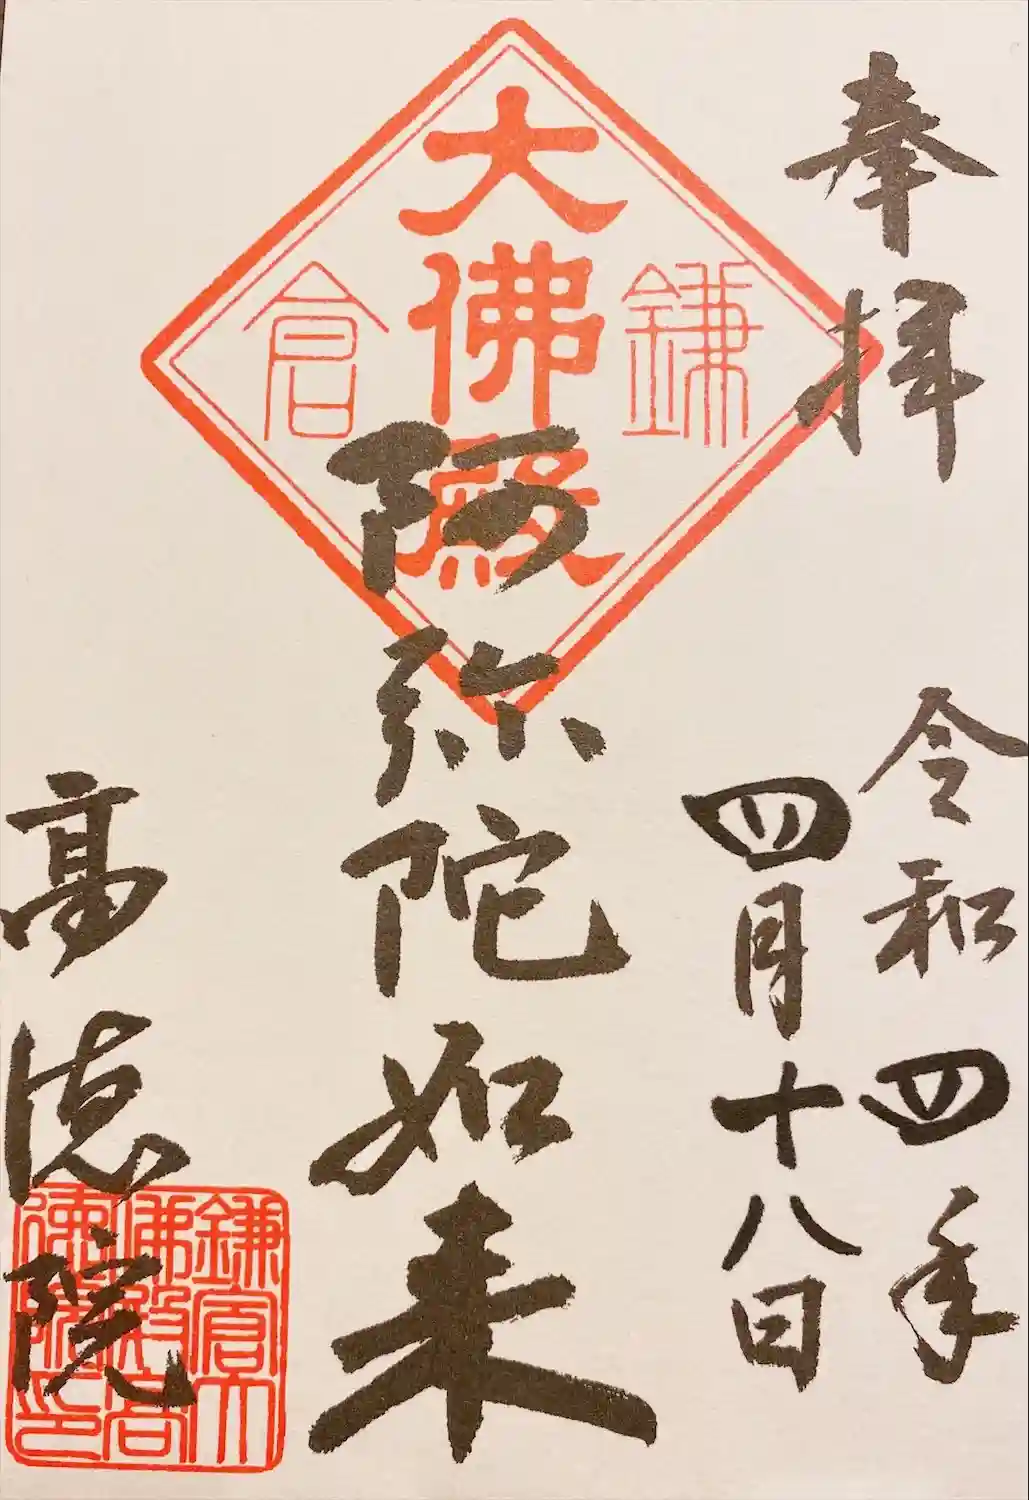 奉拝
令和四年
四月十八日
鎌倉
大佛殿
阿弥陀如来
高徳院
鎌倉大
佛殿高
徳院印